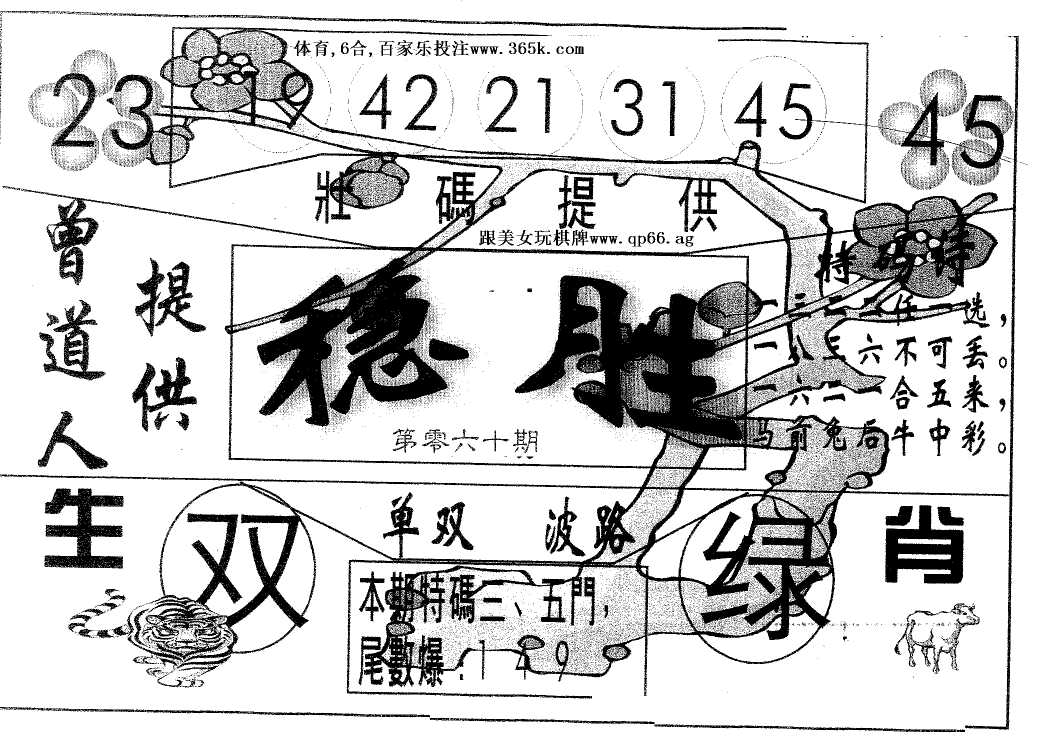 体育,6合,百家乐投注www.365k.com
23 19 42 21 31 45 45
壯碼提供
跟美女玩棋牌www.qp66.ag
曾道人
提供
稳胜
第零六十期
特码诗
一三二二任一选，
一八三六不可丢。
一六二一合五来，
马前兔后牛中彩。
生肖
单双 波路
双 绿
本期特碼三、五門，
尾數爆:149